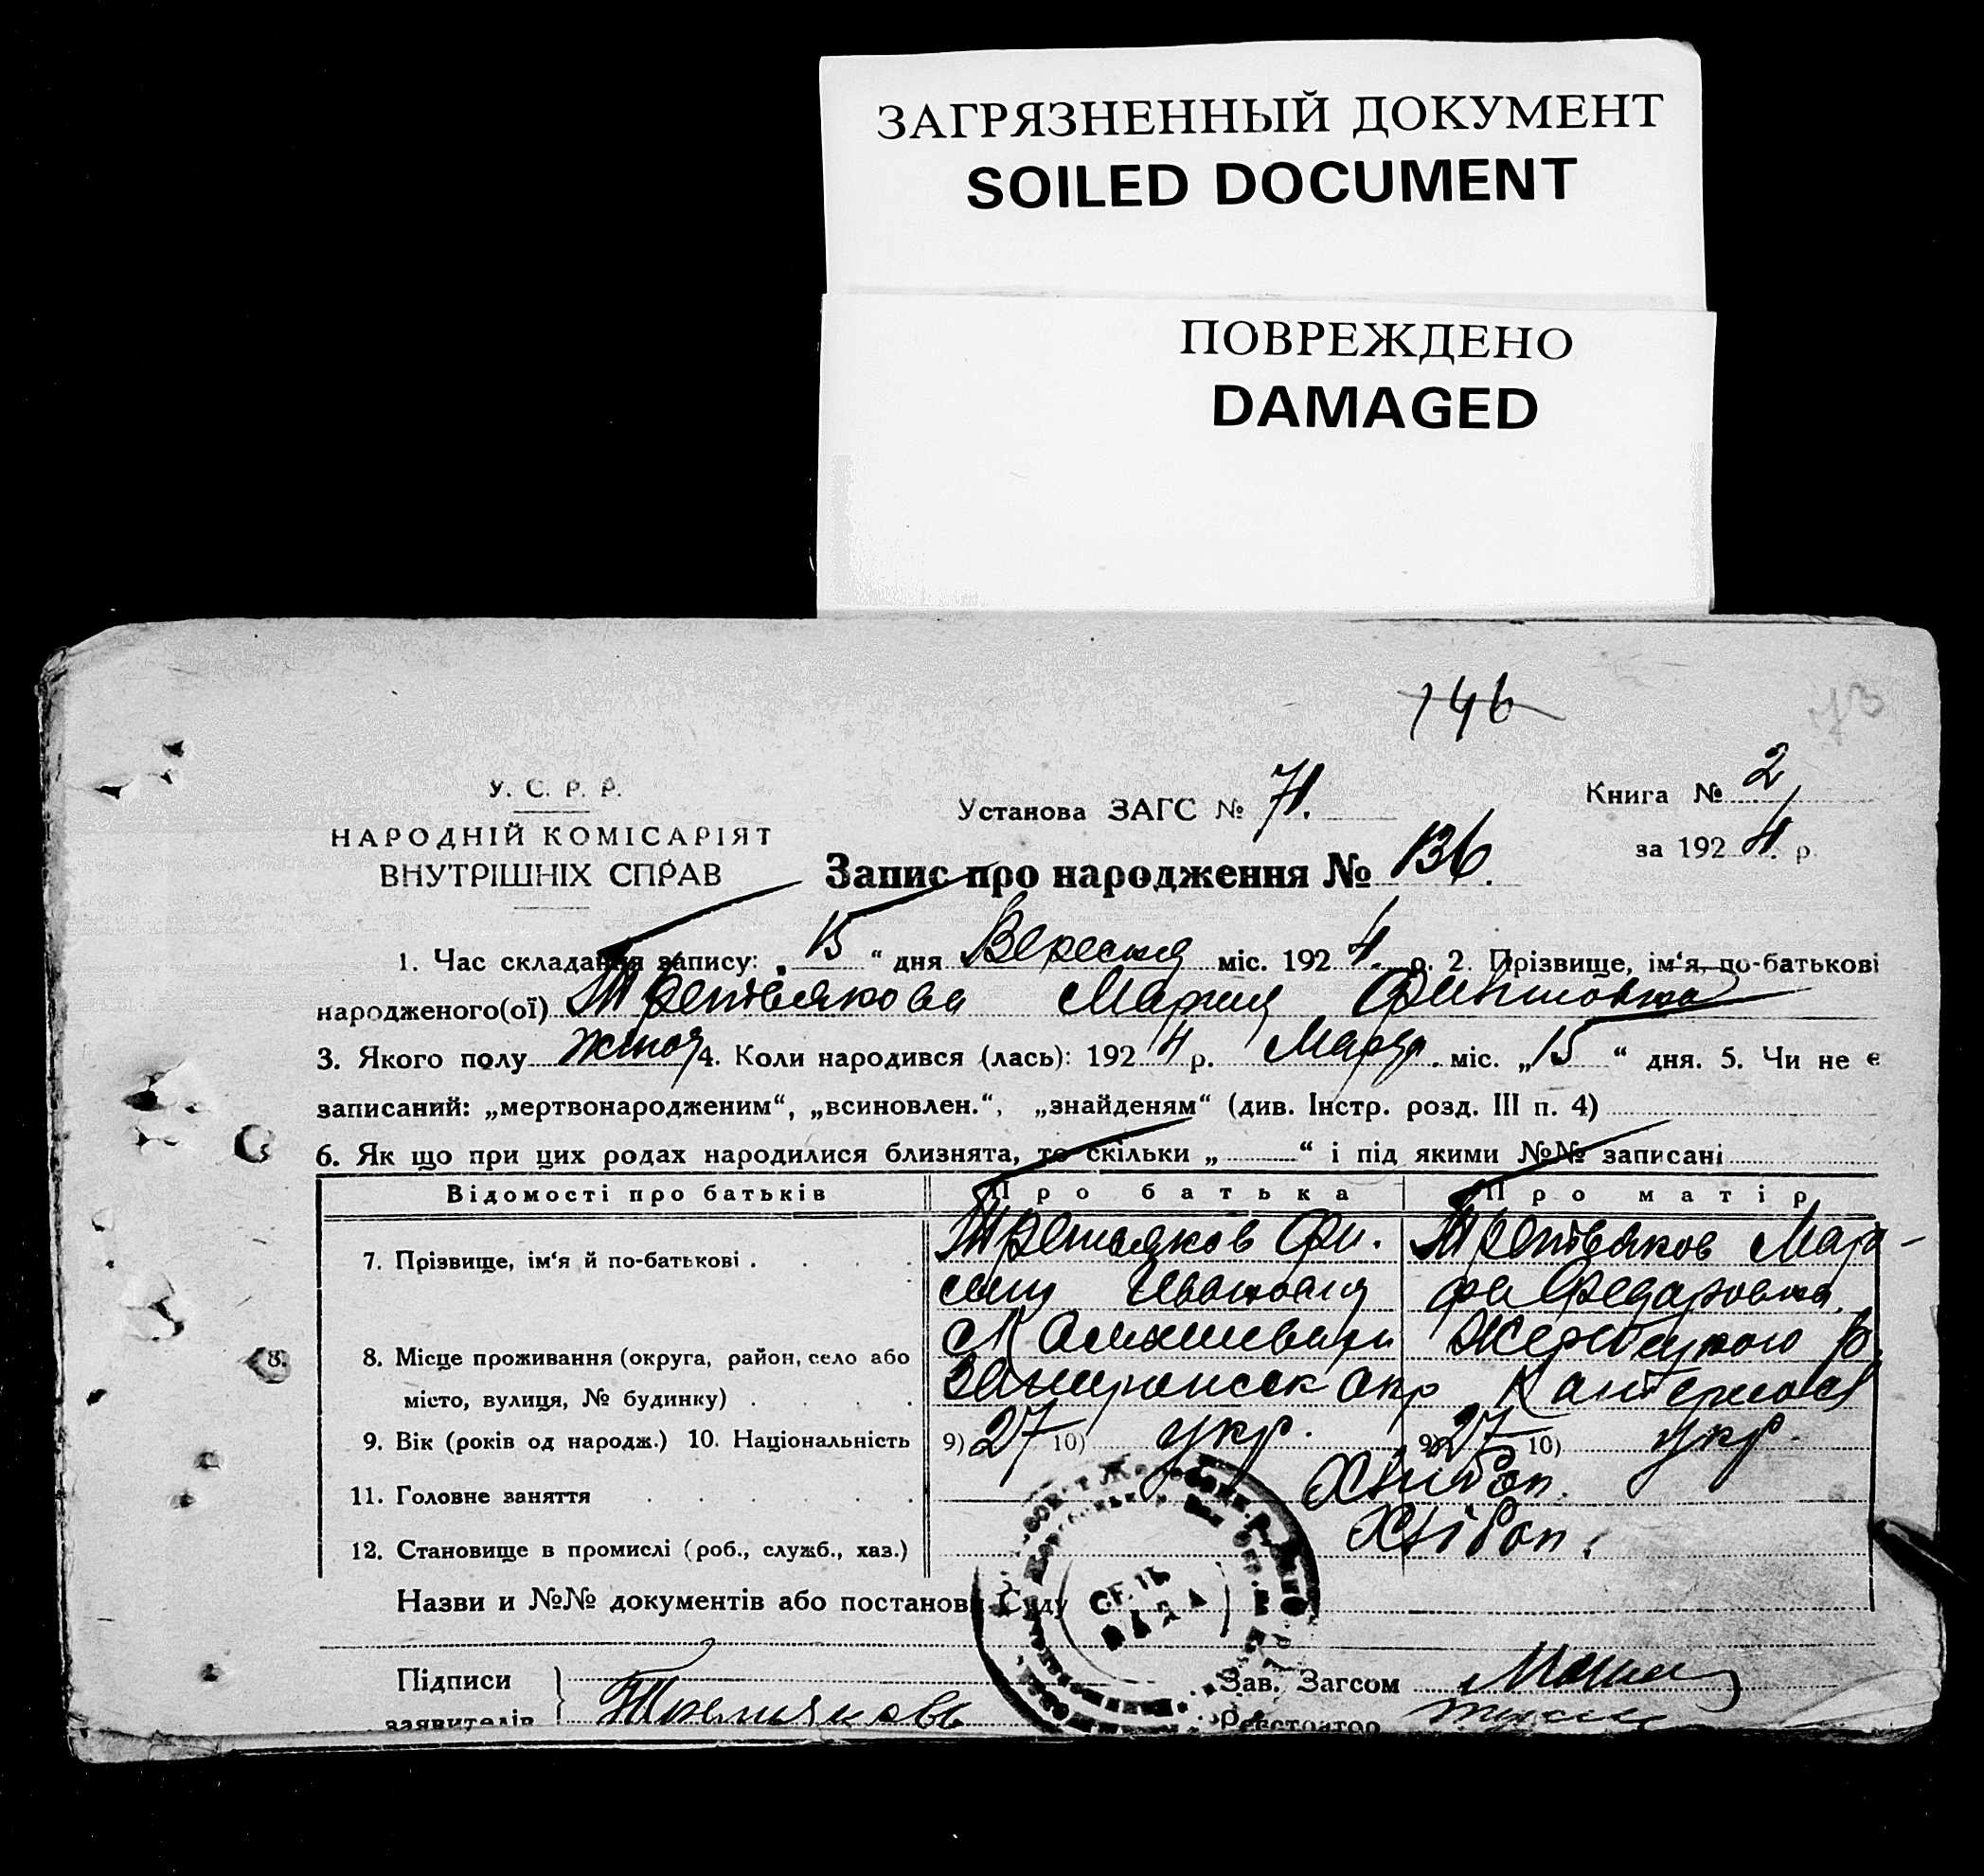 ЗАГРЯЗНЕННЫЙ ДОКУМЕНТ
SOILED DOCUMENT
ПОВРЕЖДЕНО
DAMAGED
146
73
У. С. Р. Р.
НАРОДНІЙ КОМІСАРІЯТ
ВНУТРІШНІХ СПРАВ
Установа ЗАГС № 71.
Книга № 2
за 1924 р.
Запис про народження № 136.
1. Час складання запису: „15“ дня Вересня міс. 1924 р. 2. Прізвище, ім‘я, по-батькові
народженого(ої) Третьякова Мария
3. Якого полу 4. Коли народився (лась): 1924 р. Марця. міс. „15“ дня. 5. Чи не є
записаний: „мертвонародженим“, „всиновлен.“, „знайденям“ (див. Інстр. розд. III п. 4)
6. Як що при цих родах народилися близнята, то скільки „ “ і під якими №№ записані
Відомості про батьків Про батька Про матір
7. Прізвище, ім‘я й по-батькові . Третьяков Третьяков Мар-
фа Федаровна
8. Місце проживання (округа, район, село або
місто, вулиця, № будинку) .
9. Вік (років од народж.) 10. Національність 9) 27 10) укр. 9) 27 10) укр.
11. Головне заняття Хлібоп.
12. Становище в промислі (роб., служб., хаз.) Хлібоп.
Назви и №№ документів або постанови Суду
СЕЛЬ
РАДА
Підписи Зав. Загсом
заявителів Третьяковъ Реєстратор